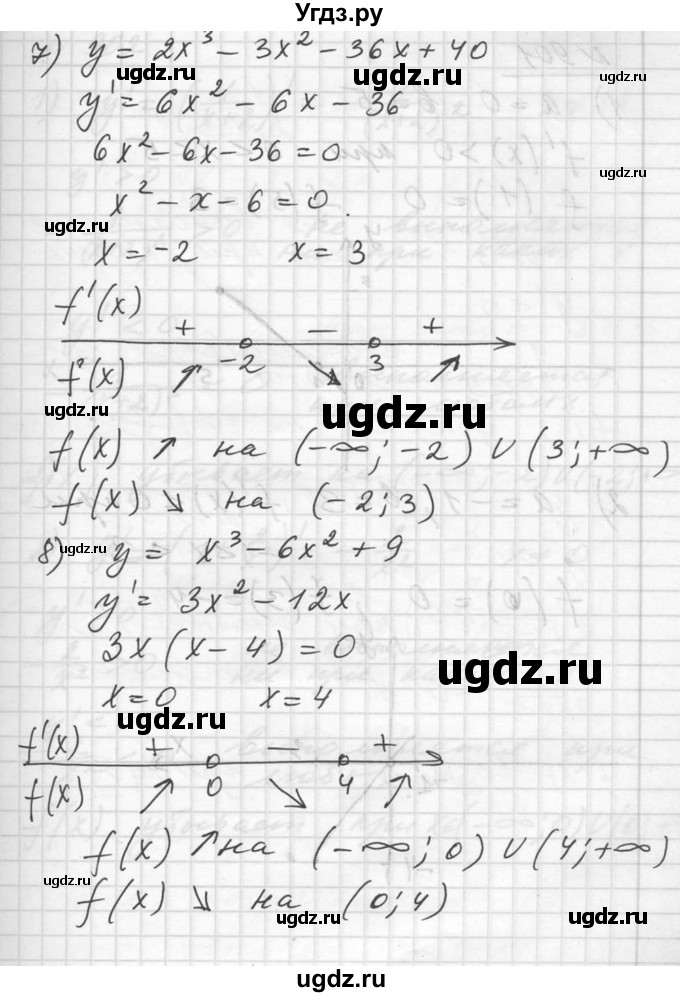 Угдз.ру
7) y = 2x³ - 3x² - 36x + 40
ugdz.ru ugdz.ru ugdz.ru
y' = 6x² - 6x - 36
6x² - 6x - 36 = 0
ugdz.ru
x² - x - 6 = 0
ugdz.ru
x = -2 x = 3
f'(x) + — +
-2 3
f(x) ↗ ↘ ↗
ugdz.ru ugdz.ru ugdz.ru
f(x) ↗ на (-∞; -2) ∪ (3; +∞)
f(x) ↘ на (-2; 3)
8) y = x³ - 6x² + 9
ugdz.ru ugdz.ru
y' = 3x² - 12x
3x(x - 4) = 0
ugdz.ru
x = 0 x = 4
ugdz.ru
f'(x) + — +
0 4
f(x) ↗ ↘ ↗
f(x) ↗ на (-∞; 0) ∪ (4; +∞)
ugdz.ru
f(x) ↘ на (0; 4)
ugdz.ru ugdz.ru
ugdz.ru